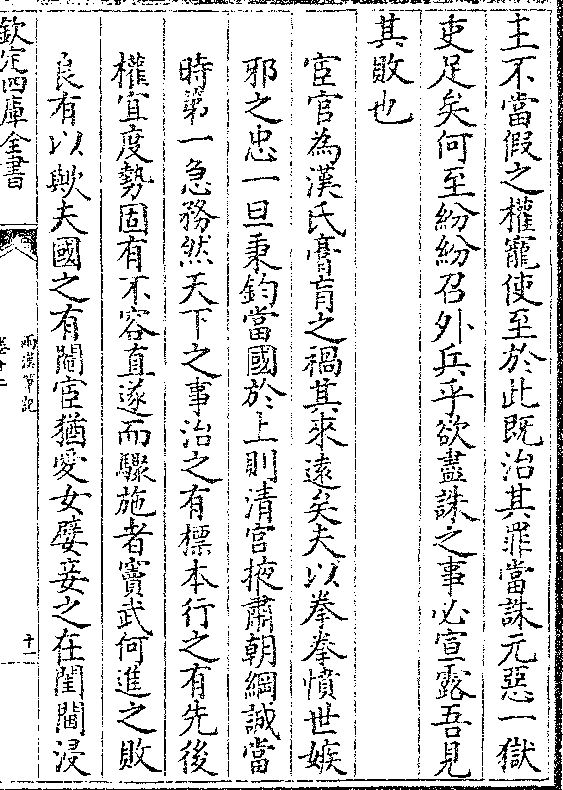 主不當假之權寵使至於此既治其罪當誅元惡一獄
吏足矣何至紛紛召外兵乎欲盡誅之事必宣露吾見
其敗也
宦官為漢氏膏肓之禍其來遠矣夫以拳拳憤世嫉
邪之忠一旦秉鈞當國於上則清宮掖肅朝綱誠當
時第一急務然天下之事治之有標本行之有先後
權宜度勢固有不容直遂而驟施者竇武何進之敗
良有以歟夫國之有閹宦猶愛女嬖妾之在閨闥浸
欽定四庫全書
兩漢筆記
卷十二
十一